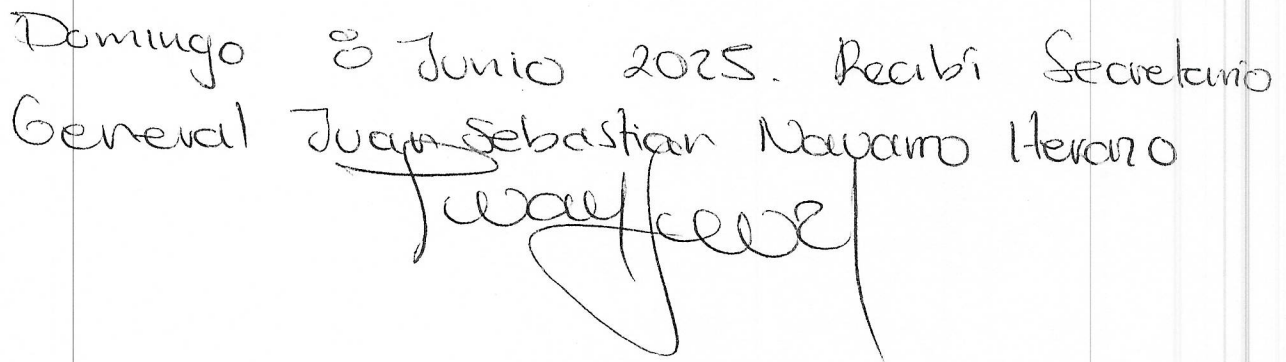 Domingo 8 Junio 2025. Recibí Secretario
General Juan Sebastian Navarro Herazo